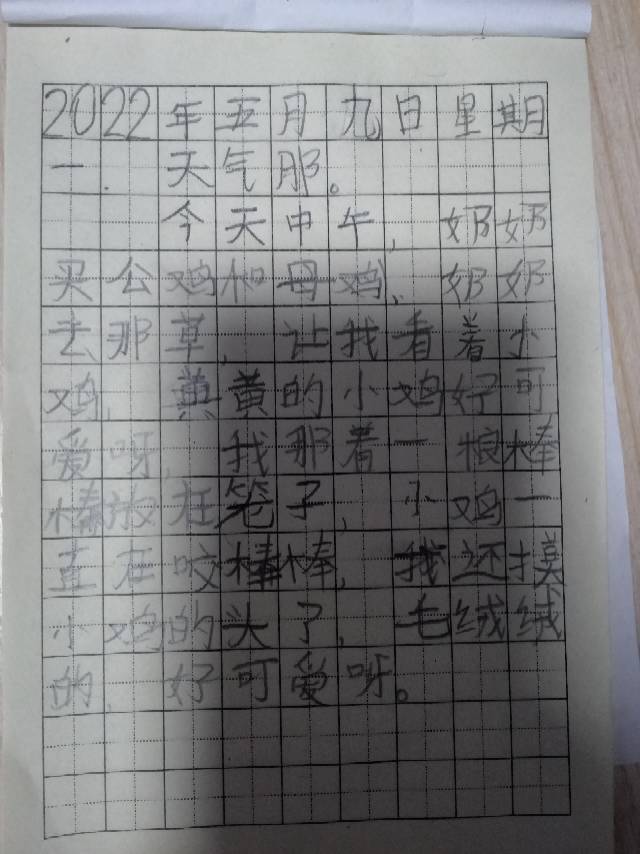 2022年五月九日星期
一. 天气那。
今天中午, 奶奶
买公鸡和母鸡、奶奶
去那草, 让我看着小
鸡, 黄黄的小鸡好可
爱呀, 我那着一根棒
棒放在笼子, 小鸡一
直在咬棒棒, 我还摸
小鸡的头了, 毛绒绒
的, 好可爱呀。